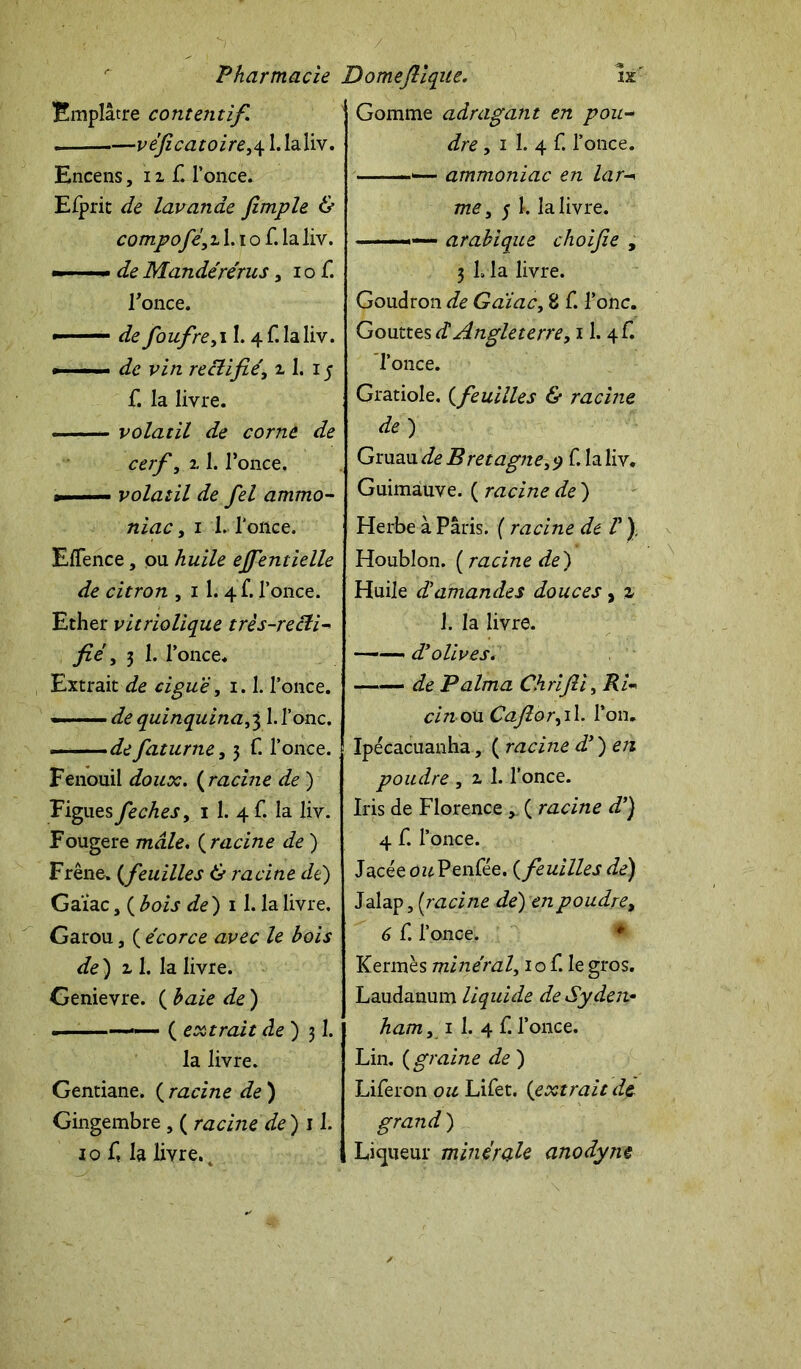 Pharmacie Domeſtique. lx
Emplâtre contentif.
———véſicatoire, 4 l. la liv.
Encens, 12 ſ. l'once.
Eſprit de lavande ſimple &
compoſé, 2 l. 10 ſ. la liv.
——— de Mandérérus, 10 ſ.
l'once.
——— de ſoufre, 1 l. 4 ſ. la liv.
——— de vin rectifié, 2 l. 15
ſ. la livre.
——— volatil de corne de
cerf, 2 l. l'once.
——— volatil de ſel ammo-
niac, 1 l. l'once.
Eſſence, ou huile eſſentielle
de citron, 1 l. 4 ſ. l'once.
Ether vitriolique très-recti-
fié, 3 l. l'once.
Extrait de ciguë, 1. l. l'once.
——— de quinquina, 3 l. l'onc.
——— de ſaturne, 3 ſ. l'once.
Fenouil doux. (racine de)
Figues ſeches, 1 l. 4 ſ. la liv.
Fougere mâle. (racine de)
Frêne. (feuilles & racine de)
Gaïac, (bois de) 1 l. la livre.
Garou, (écorce avec le bois
de) 2 l. la livre.
Genievre. (baie de)
——— (extrait de) 3 l.
la livre.
Gentiane. (racine de)
Gingembre, (racine de) 1 l.
10 ſ. la livre.
Gomme adragant en pou-
dre, 1 l. 4 ſ. l'once.
——— ammoniac en lar-
me, 5 l. la livre.
——— arabique choiſie,
3 l. la livre.
Goudron de Gaïac, 8 ſ. l'onc.
Gouttes d'Angleterre, 1 l. 4 ſ.
l'once.
Gratiole. (feuilles & racine
de)
Gruau de Bretagne, 9 ſ. la liv.
Guimauve. (racine de)
Herbe à Pâris. (racine de l')
Houblon. (racine de)
Huile d'amandes douces, 2
l. la livre.
——— d'olives.
——— de Palma Chriſti, Ri-
cin ou Caſtor, 1 l. l'on.
Ipécacuanha, (racine d') en
poudre, 2 l. l'once.
Iris de Florence, (racine d')
4 ſ. l'once.
Jacée ou Penſée. (feuilles de)
Jalap, (racine de) en poudre,
6 ſ. l'once.
Kermès minéral, 10 ſ. le gros.
Laudanum liquide de Syden-
ham, 1 l. 4 ſ. l'once.
Lin. (graine de)
Liſeron ou Liſet. (extrait de
grand)
Liqueur minérale anodyne